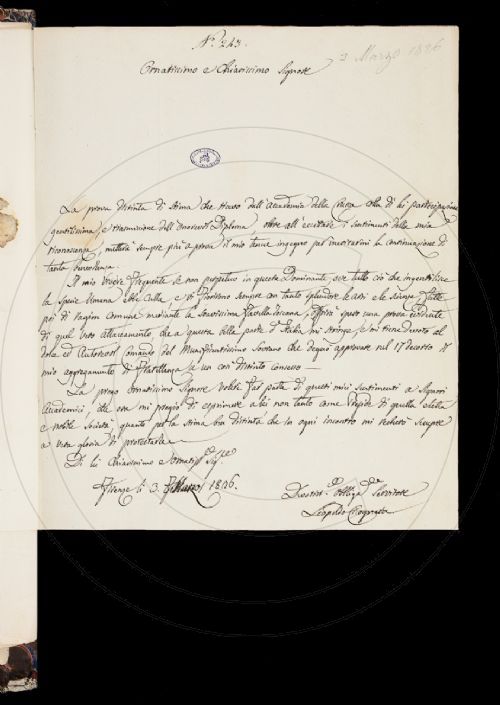 N.° 243.
3 Marzo 1826
Ornatissimo e Chiarissimo Signore
La prova distinta di stima che trasse dall'Accademia della Crusca colla di lei partecipazione
gentilissima, e trasmissione dell'onorevol Diploma, oltre all'eccitare i sentimenti della mia
riconoscenza, metterà sempre più a prova il mio tenue ingegno per meritarmi la continuazione di
tanta benevolenza.
Il mio vivere frequente se non perpetuo in questa Dominante, ove tutto ciò che ingentilisce
la specie umana ebbe culla, e vi fioriscono sempre con tanto splendore le arti e le scienze fatte
poi di ragion comune mediante la soavissima favella Toscana, offrirà spero una prova evidente
di quel vero attaccamento che a questa bella parte d'Italia mi stringe, e mi rende
ed Autorevol comando del Munificentissimo Sovrano che degnò approvare nel 17 decorso il
mio aggregamento di fratellanza a un così distinto consesso.
La prego Ornatissimo Signore volere far parte di questi miei sentimenti ai Signori
Accademici, che ora mi pregio di esprimere a lei non tanto come Preside di quella eletta
e nobile Società, quanto per la stima ben distinta che in ogni incontro mi recherò sempre
a vera gloria di protestarle
Di lei Chiarissimo e Ornatiss.° Sig.re
Firenze li 3. Marzo 1826.
Devotiss.° Obblig.° Servitore
Leopoldo Cicognara